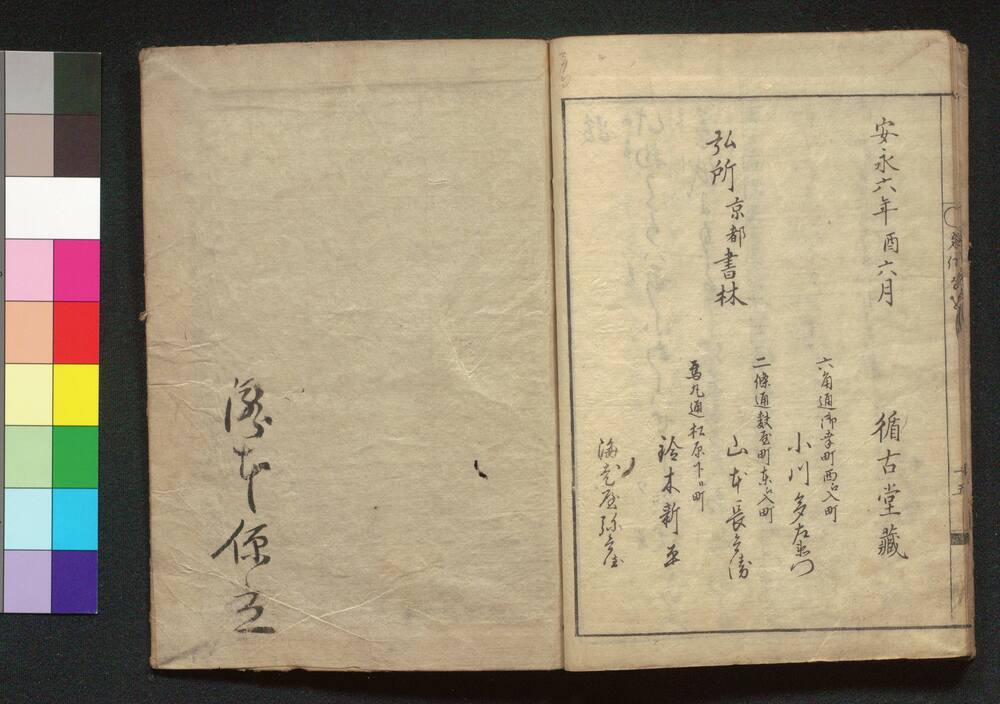 安永六年酉六月
循古堂藏
弘所 京都書林
六角通御幸町西へ入町
小川多左衛門
二條通麩屋町東へ入町
山本長兵衛
烏丸通松原下ル町
鈴木新平
海老屋弥兵衛